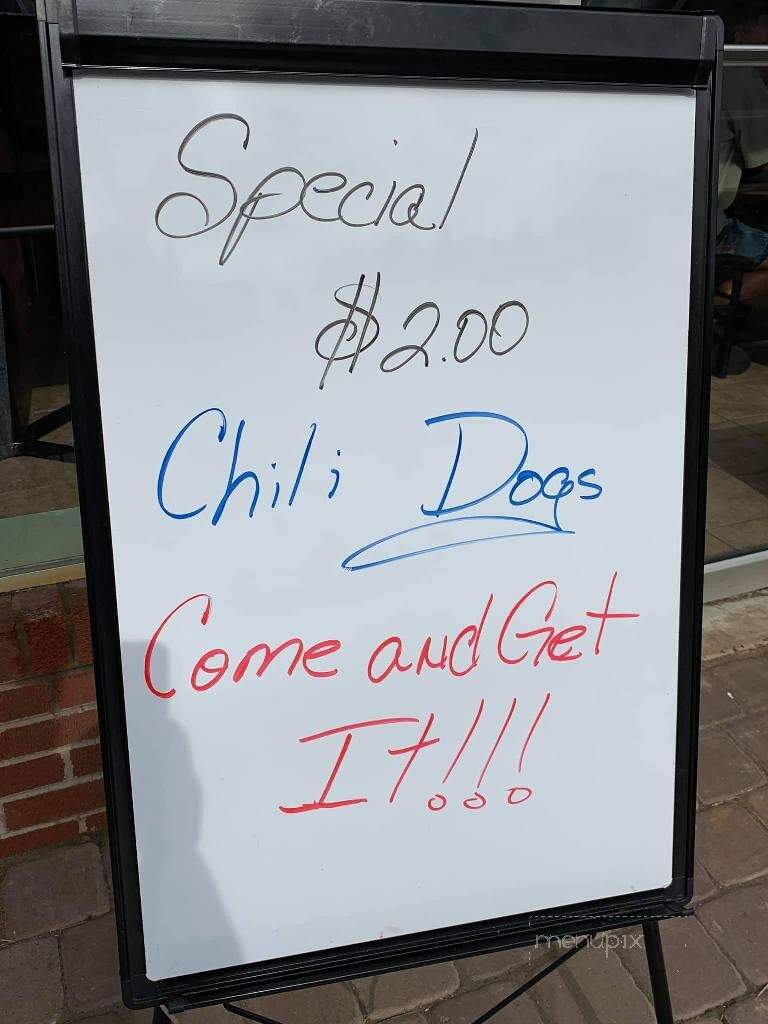 Special
$2.00
Chili Dogs
Come and Get
It!!!
menupix